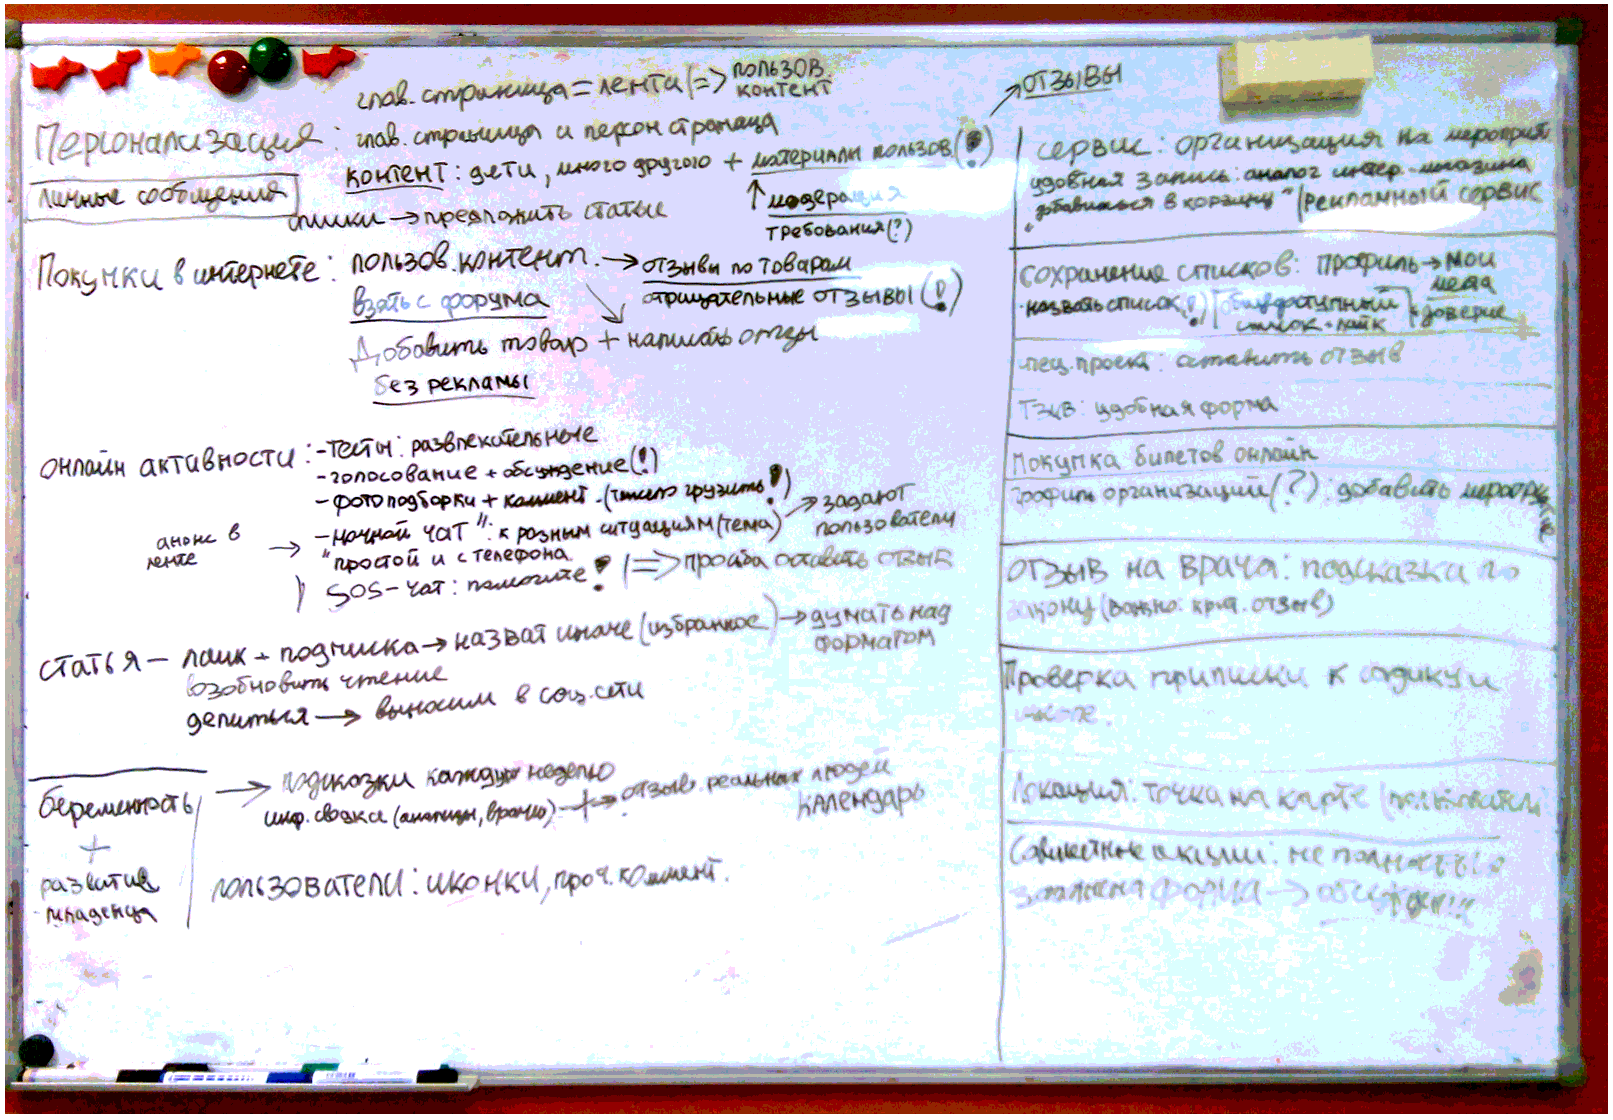 глав. страница = лента | => пользов контент
Персонализация: глав. страница и персон страница
контент: дети, много другого + материалы пользов (!)
отзывы
модерация
требования (?)
личные сообщения
списки → предложить статьи
Покупки в интернете: пользов. контент. → отзывы по товарам
отрицательные отзывы (!)
взять с форума
Добавить товар + написать отзы
без рекламы
онлайн активности: - тесты: развлекательные
- голосование + обсуждение (!)
- фотоподборки + коммент. (тяжело грузить!)
- "ночной чат": к разным ситуациям (тема) → задают пользователи
простой и с телефона
анонс в ленте →
SOS-чат: помогите! | => просьба оставить отзыв
статья — лайк + подписка → назват иначе (избранное) → думать над форматом
возобновить чтение
делиться → выносим в соц. сети
беременность
+
развитие
младенца
→ подсказки каждую неделю
инф. сводка (анализы, врачи) + → отзывы реальных людей
календарь
пользователи: иконки, проч. коммент.
сервис: организация на мероприят
удобная запись: аналог интер. магазина
"добавиться в корзину" / рекламный сервис
сохранение списков: профиль → мои места
назвать список (!) общедоступный список + лайк доверие
спец. проект: оставить отзыв
отзыв: удобная форма
Покупка билетов онлайн
профиль организаций (?): добавить меропр
отзыв на врача: подсказка по
закону (важно: кр-й. отзыв)
Проверка приписки к садику и
школе.
Локация: точка на карте (пользователи)
Совместные акции: не полностью
форма → обсужден!!!